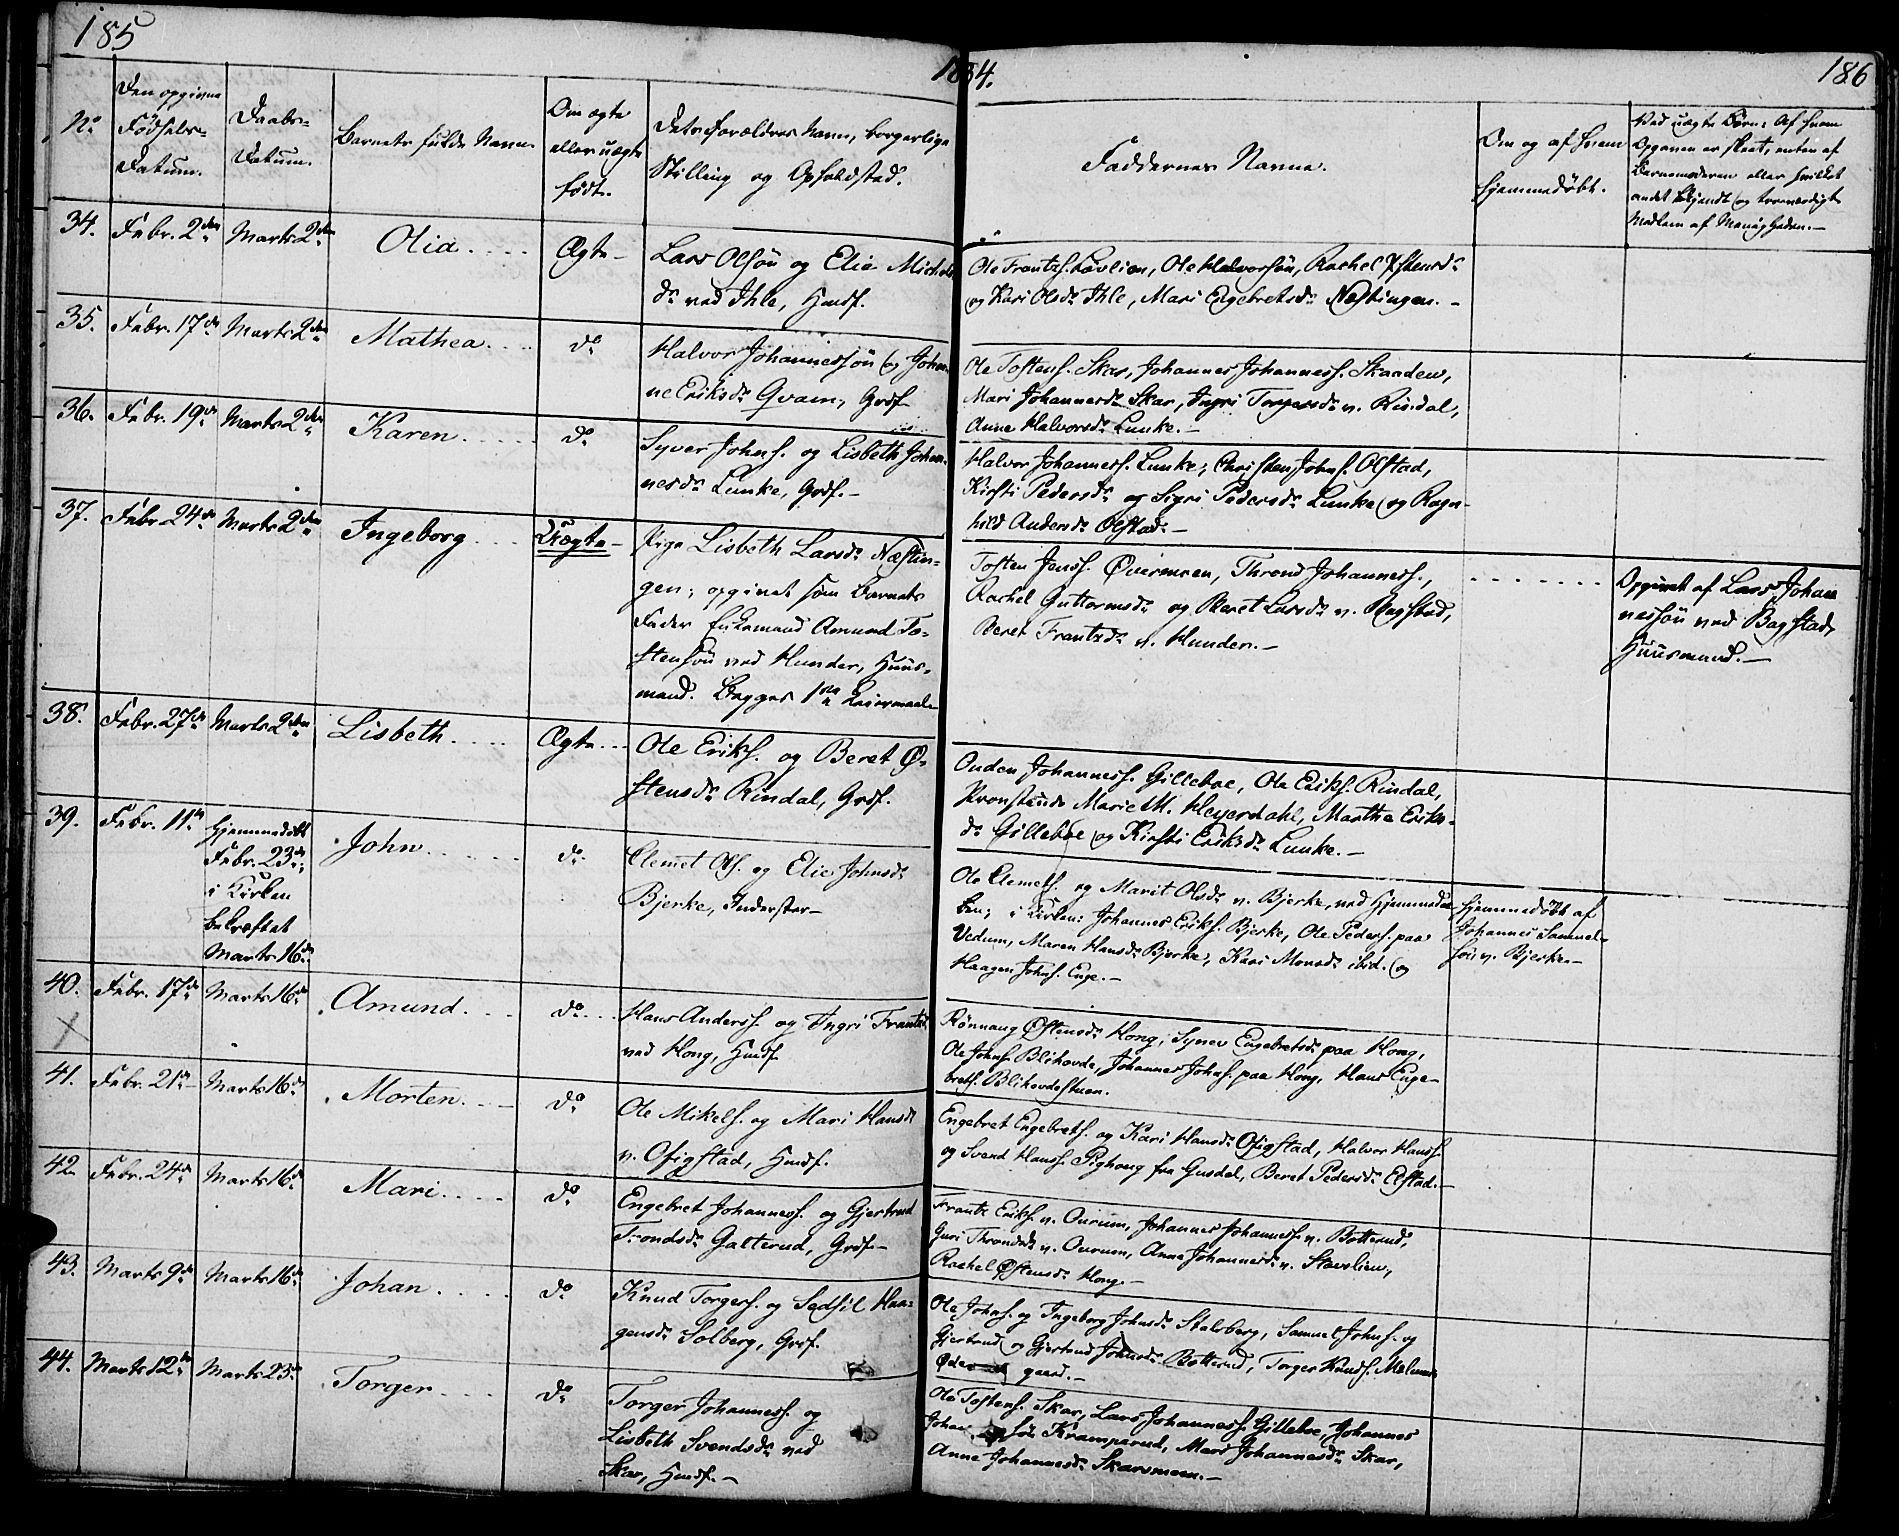 185
1834.
186
No
Den opgivne
Fødsels-
Datum.
Daabs-
Datum.
Barnets fulde Navn
Om ægte
eller uægte
født.
Dets Forældres Navn, borgerlige
Stilling og Opholdssted.
Faddernes Navne.
Om og af hvem
hjemmedøbt.
Ved uægte Børn: Af hvem
Opgaven er skeet, enten af
Barnemoderen eller hvilket
andet bekjendt og troeværdigt
Medlem af Menigheden.—
34.
Febr. 2den
Marts 2den
Olia . . . .
Ægte -
Lars Olsøn og Elie Michels
dr ved Ihle, Hmdf.
Ole Frantzs. Løvlien, Ole Halvorsøn, Rachel Østensdr
og Kari Olsdr Ihle, Mari Engebretsdr Næstingen. -
35.
Febr. 17de
Marts 2den
Mathea . . .
do
Halvor Johannessøn og Johan
ne Eriksdr Qvam, Grdf.
Ole Tostens. Skar, Johannes Johanness. Skaaden,
Mari Johannesdr Skar, Ingri Torgersdr v. Rindal,
Anne Halvorsdr Lunke. -
36.
Febr. 19de
Marts 2den
Karen . . . .
do
Syver Johns. og Lisbeth Johan-
nesdr Lunke, Grdf. -
Halvor Johanness. Lunke, Christen Johns. Olstad,
Kirsti Pedersdr og Sigri Pedersdr Lunke og Ragn-
hild Andersdr Olstad. -
37.
Febr. 24de
Marts 2den
Ingeborg . . .
Uægte -
Pige Lisbeth Larsdr Næstin-
gen; opgivet som Barnets
Fader Enkemand Amund To-
stensøn ved Hunder, Huus-
mand. Begges 1ste Leiermaal.
Tosten Jenss. Øvermoen, Thrond Johanness.,
Rachel Guttormsdr og Beret Larsdr v. Bagstad,
Beret Frantzdr v. Hunder. -
Opgivet af Lars Johan
nessøn ved Bagstad,
Huusmand. -
38.
Febr. 27de
Marts 2den
Lisbeth . . . .
Ægte . . .
Ole Eriks. og Beret Ø-
stensdr Rindal, Grdf.
Onden Johanness. Gilleboe, Ole Eriks. Rindal,
Marie M. Heyerdahl, Marthe Eriks-
dr Gilleboe og Kirsti Eriksdr Lunke. -
39.
Febr. 11te
Hjemmedøbt
Febr. 23de
i Kirken
bekræftet
Marts 16de
John . . . . .
do
Clemet Ols. og Elie Johnsdr
Bjerke, Inderster -
Ole Clemets. og Marit Olsdr v. Bjerke, ved Hjemmedaa-
ben; i Kirken: Johannes Eriks. Bjerke, Ole Peders. paa
Vedum, Maren Hansdr Bjerke, Kari Monsdr ibid. og
Haagen Johns. Enge. -
Hjemmedøbt af
Johannes Samuel-
søn v. Bjerke. -
40.
Febr. 17de
Marts 16de
Amund . . .
do . . .
Hans Anderss. og Ingri Frantzd.
ved Hong, Hmdf.
Rønnaug Østensdr Hong, Synev Engebretsdr paa Hong,
Ole Johns. Blihovde, Johannes Johns. paa Hong, Hans Enge-
brets. Blihovdestuen.
41.
Febr. 21de
Marts 16de
Morten . . .
do
Ole Mikels. og Mari Hansdr
v. Ofigstad, Hmdf.
Engebret Engebrets. og Kari Hansdr Ofigstad, Halvor Hanss.
og Svend Hanss. Pighoug fra Gusdal, Beret Pedersdr Elstad. -
42.
Febr. 24de
Marts 16de
Mari . . . .
do
Engebret Johanness. og Gjertrud
Trondsdr Galterud, Grdf. -
Frantz Eriks. v. Ourum, Johannes Johanness. v. Botterud,
Guri Throndsdr v. Ourum, Anne Johannesdr v. Stavslien,
Rachel Østensdr Hong. -
43.
Marts 9de
Marts 16de
Johan . . . .
do
Knud Torgers. og Sedsil Haa-
gensdr Solberg, Grdf.
Ole Johns. og Ingeborg Johnsdr Stalsberg, Samuel Johns. og
Gjertrud og Gjertrud Johnsdr Botterud, Torger Knuds. Melum
Øde gaard. -
44.
Marts 12te
Marts 23de
Torger . . . .
do
Torger Johanness. og
Lisbeth Svendsdr ved
Skar, Hmdf. -
Ole Tostens. Skar, Lars Johanness. Gilleboe, Johannes
Johan søn Kramperud, Mari Johannesdr Skar,
Anne Johannesdr Skarsmoen. -